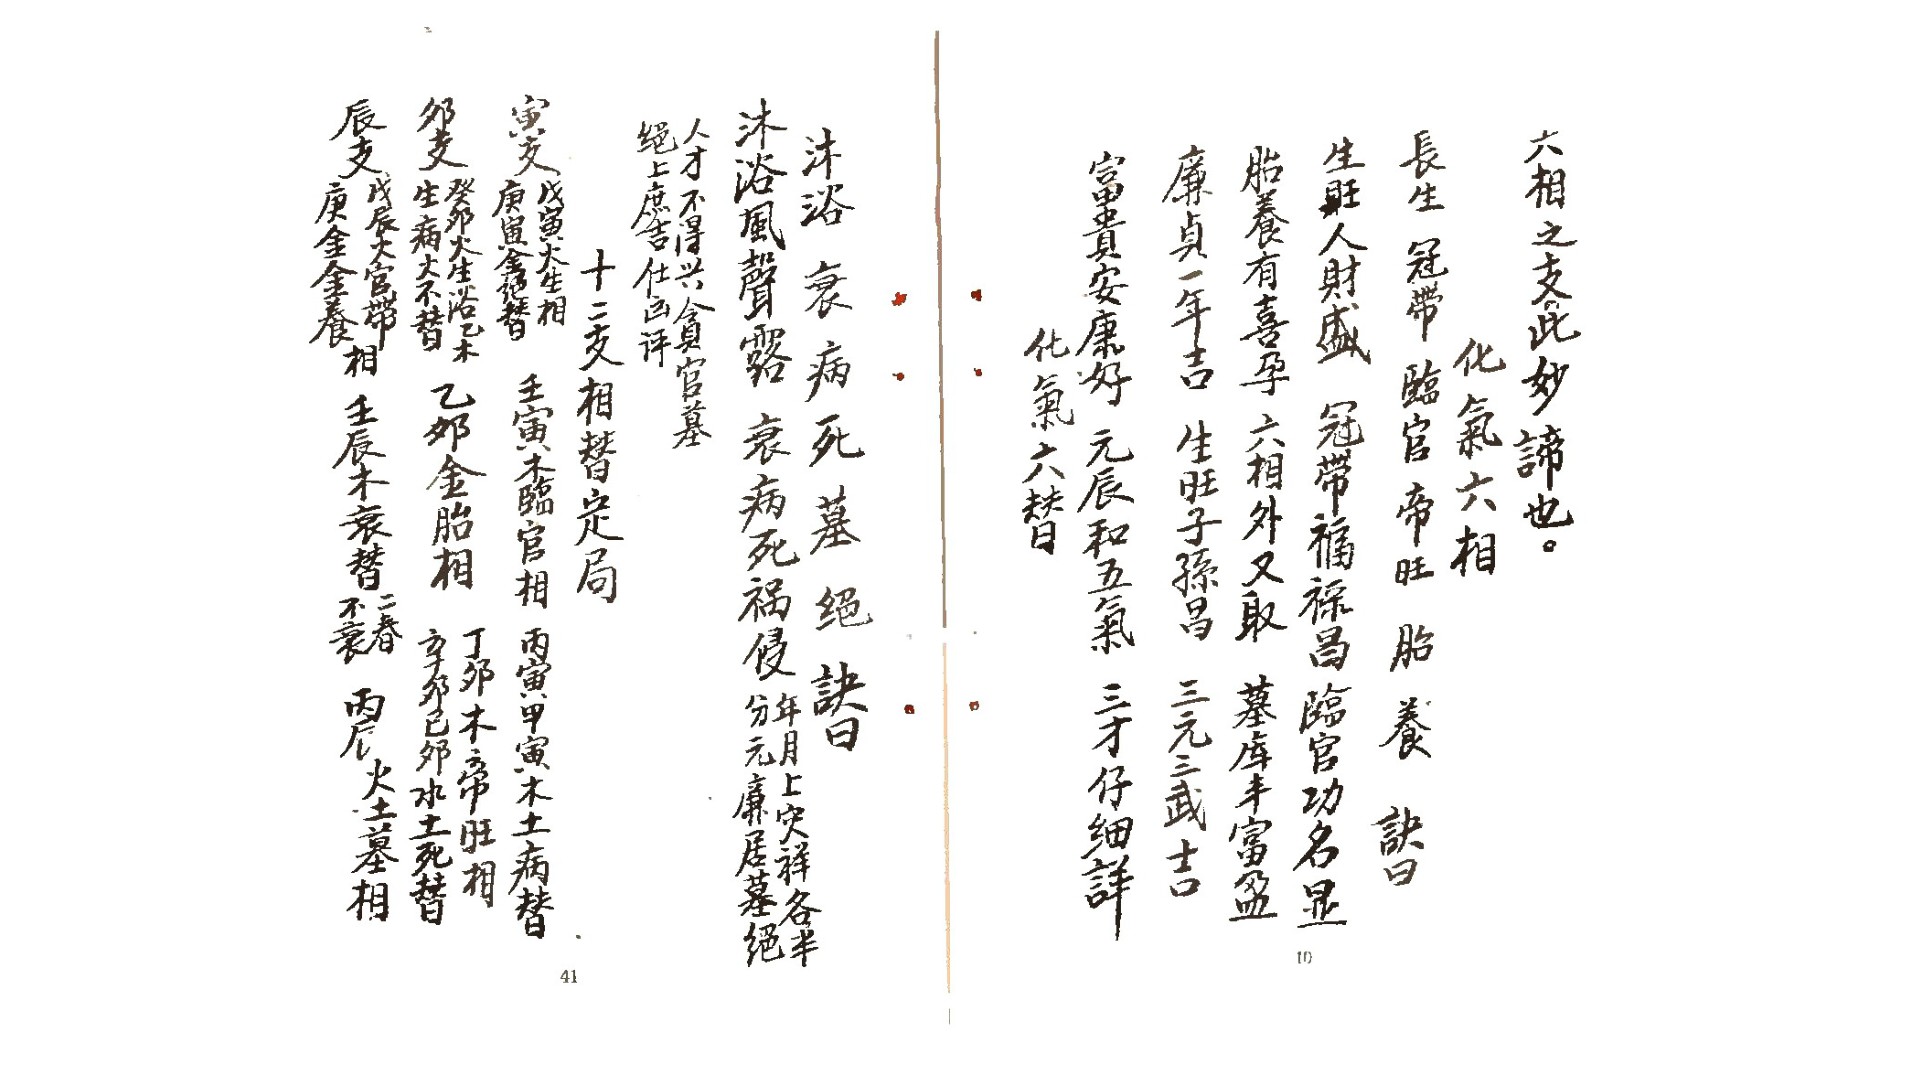 六相之支此妙諦也。
化氣六相
長生 冠帶 臨官 帝旺 胎 養 訣曰
生旺人財盛 冠帶福祿昌 臨官功名显
胎養有喜孕 六相外又取 墓库丰富盈
廉貞一年吉 生旺子孫昌 三元三武吉
富貴安康好 元辰和五氣 三才仔细詳
化氣六替
10
沐浴 衰 病 死 墓 绝 訣曰
沐浴風聲露 衰病死祸侵 年月上灾祥各半
分元廉居墓绝
人才不得兴 贪官墓
绝上庶吉仕凶评
十二支相替定局
寅支 戊寅火生相
庚寅金绝替 壬寅木臨官相 丙寅甲寅木土病替
卯支 癸卯火生浴乙木
生病火不替 乙卯金胎相 丁卯木帝旺相
辛卯己卯水土死替
辰支 戊辰火官帶
庚金金養 相 壬辰木衰替 二春
不衰 丙辰 火土墓相
41